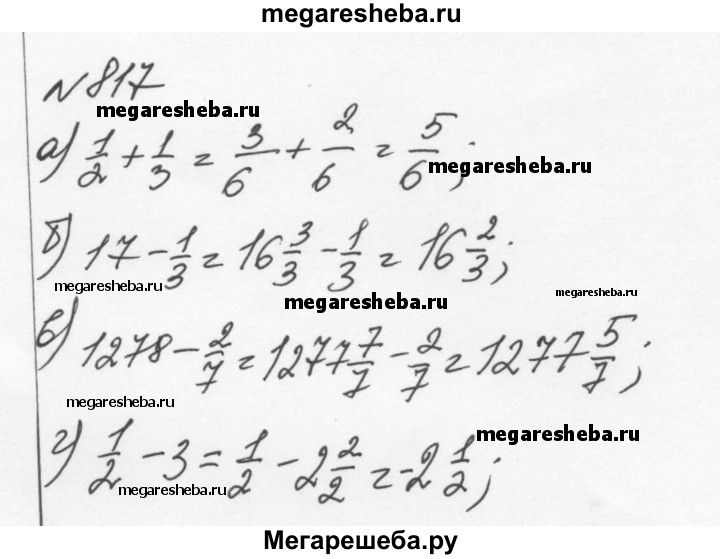 megaresheba.ru
№817
megaresheba.ru
а) 1/2 + 1/3 = 3/6 + 2/6 = 5/6;
megaresheba.ru
б) 17 - 1/3 = 16 3/3 - 1/3 = 16 2/3;
megaresheba.ru
megaresheba.ru
megaresheba.ru
в) 1278 - 2/7 = 1277 7/7 - 2/7 = 1277 5/7;
megaresheba.ru
megaresheba.ru
г) 1/2 - 3 = 1/2 - 2 2/2 = -2 1/2;
megaresheba.ru
megaresheba.ru
Мегарешеба.ру